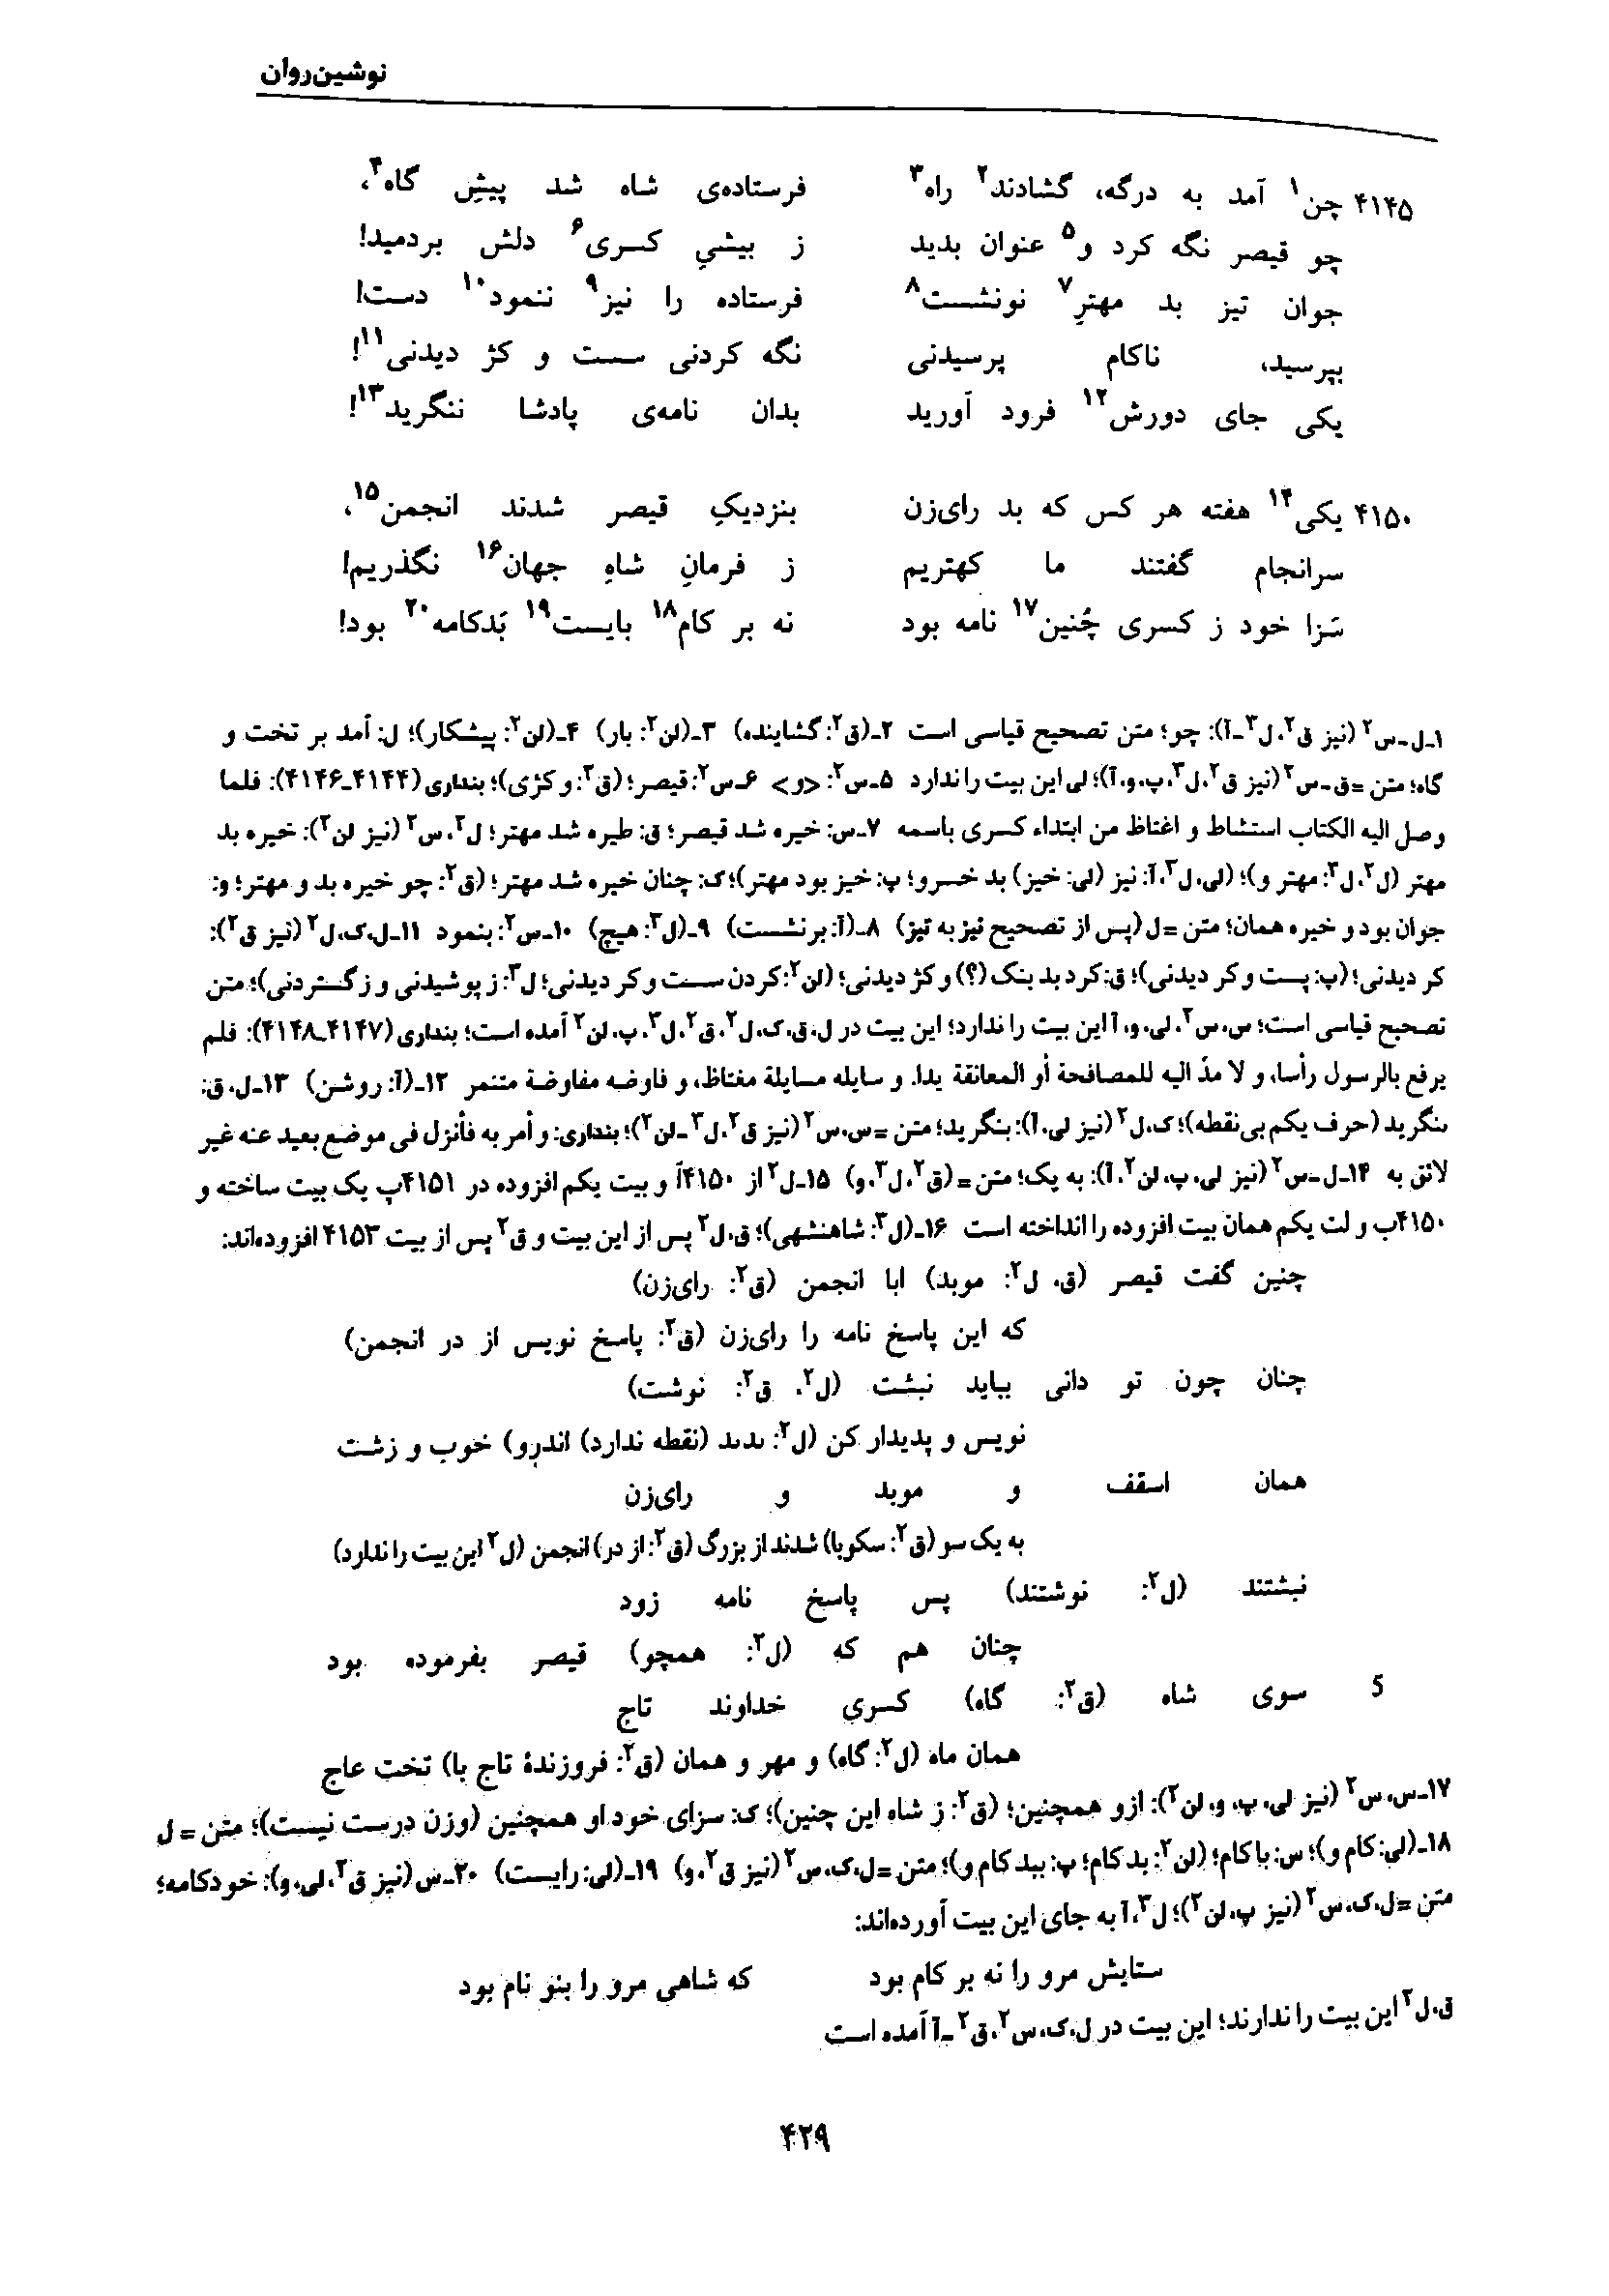 نوشین‌روان
۴۱۴۵ چن۱ آمد به درگه، گشادند۲ راه۳ فرستاده‌ی شاه شد پیشِ گاه۴،
چو قیصر نگه کرد و۵ عنوان بدید ز بیشیِ کسری۶ دلش بردمید!
جوان تیز بد مهترِ۷ نونشست۸ فرستاده را نیز۹ ننمود۱۰ دست!
بپرسید، ناکام پرسیدنی نگه کردنی سست و کژ دیدنی۱۱!
یکی جای دورش۱۲ فرود آورید بدان نامه‌ی پادشا ننگرید۱۳!
۴۱۵۰ یکی۱۴ هفته هر کس که بد رای‌زن بنزدیکِ قیصر شدند انجمن۱۵،
سرانجام گفتند ما کهتریم ز فرمانِ شاهِ جهان۱۶ نگذریم!
سَزا خود ز کسری چُنین۱۷ نامه بود نه بر کام۱۸ بایست۱۹ بَدکامه۲۰ بود!
۱ـ ل ـ س۲ (نیز ق۲، ل۳ ـ آ): چو؛ متن تصحیح قیاسی است ۲ـ (ق۲: گشاینده) ۳ـ (لن۲: بار) ۴ـ (لن۲: پیشکار)؛ ل: آمد بر تخت و
گاه؛ متن = ق ـ س۲ (نیز ق۲، ل۳، پ، و، آ)؛ لی این بیت را ندارد ۵ـ س۲: <و> ۶ـ س۲: قیصر؛ (ق۲: و کژی)؛ بنداری (۴۱۴۴ـ۴۱۴۶): فلما
وصل الیه الکتاب استشاط و اغتاظ من ابتداء کسری باسمه ۷ـ س: خیره شد قیصر؛ ق: طیره شد مهتر؛ ل۲، س۲ (نیز لن۲): خیره بد
مهتر (ل۲، ل۳: مهتر و)؛ (لی، ل۳، آ: نیز (لی: خیز) بد خسرو؛ پ: خیز بود مهتر)؛ ک: چنان خیره شد مهتر؛ (ق۲: چو خیره بد و مهتر؛ و:
جوان بود و خیره همان؛ متن = ل (پس از تصحیح نیز به تیز) ۸ـ (آ: برنشست) ۹ـ (ل۳: هیچ) ۱۰ـ س۲: بنمود ۱۱ـ ل، ک، ل۲ (نیز ق۲):
کر دیدنی؛ (پ: پست و کر دیدنی)؛ ق: کرد بد بنک (؟) و کژ دیدنی؛ (لن۲: کردن سست و کر دیدنی؛ ل۳: ز پوشیدنی و ز گستردنی)؛ متن
تصحیح قیاسی است؛ س، س۲، لی، و، آ این بیت را ندارد؛ این بیت در ل، ق، ک، ل۲، ق۲، ل۳، پ، لن۲ آمده است؛ بنداری (۴۱۴۷ـ۴۱۴۸): فلم
یرفع بالرسول رأسا، و لا مدّ الیه للمصافحة أو المعانقة یدا. و سایله مسایلة مغتاظ، و فاوضه مفاوضة متنمر ۱۲ـ (آ: روشن) ۱۳ـ ل، ق:
ننگرید (حرف یکم بی‌نقطه)؛ ک، ل۲ (نیز لی، آ): بنگرید؛ متن = س، س۲ (نیز ق۲، ل۳ ـ لن۲)؛ بنداری: و أمر به فأنزل فی موضع بعید عنه غیر
لائق به ۱۴ـ ل ـ س۲ (نیز لی، پ، لن۲، آ): به یک؛ متن = (ق۲، ل۳، و) ۱۵ـ ل۲ از ۴۱۵۰آ و بیت یکم افزوده در ۴۱۵۱پ یک بیت ساخته و
۴۱۵۰ب و لت یکم همان بیت افزوده را انداخته است ۱۶ـ (ل۳: شاهنشهی)؛ ق، ل۲ پس از این بیت و ق۲ پس از بیت ۴۱۵۳ افزوده‌اند:
چنین گفت قیصر (ق، ل۲: موبد) ابا انجمن (ق۲: رای‌زن)
که این پاسخ نامه را رای‌زن (ق۲: پاسخ نویس از در انجمن)
چنان چون تو دانی بباید نبشت (ل۲، ق۲: نوشت)
نویس و پدیدار کن (ل۲: بدید (نقطه ندارد) اندرو) خوب و زشت
همان اسقف و موبد و رای‌زن
به یک سو (ق۲: سکوبا) شدند از بزرگ (ق۲: از در) انجمن (ل۲ این بیت را ندارد)
نبشتند (ل۲: نوشتند) پس پاسخ نامه زود
چنان هم که (ل۲: همچو) قیصر بفرموده بود
5 سوی شاه (ق۲: گاه) کسری خداوند تاج
همان ماه (ل۲: گاه) و مهر و همان (ق۲: فروزندهٔ تاج با) تخت عاج
۱۷ـ س، س۲ (نیز لی، پ، و، لن۲): ازو همچنین؛ (ق۲: ز شاه این چنین)؛ ک: سزای خود او همچنین (وزن درست نیست)؛ متن = ل
۱۸ـ (لی: کام و)؛ س: با کام؛ (لن۲: بدکام؛ پ: ببد کام و)؛ متن = ل، ک، س۲ (نیز ق۲، و) ۱۹ـ (لی: رایست) ۲۰ـ س (نیز ق۲، لی، و): خودکامه؛
متن = ل، ک، س۲ (نیز پ، لن۲)؛ ل۳، آ به جای این بیت آورده‌اند:
ستایش مرو را نه بر کام بود که شاهی مرو را بنو نام بود
ق، ل۲ این بیت را ندارند؛ این بیت در ل، ک، س۲، ق۲ ـ آ آمده است
۴۲۹